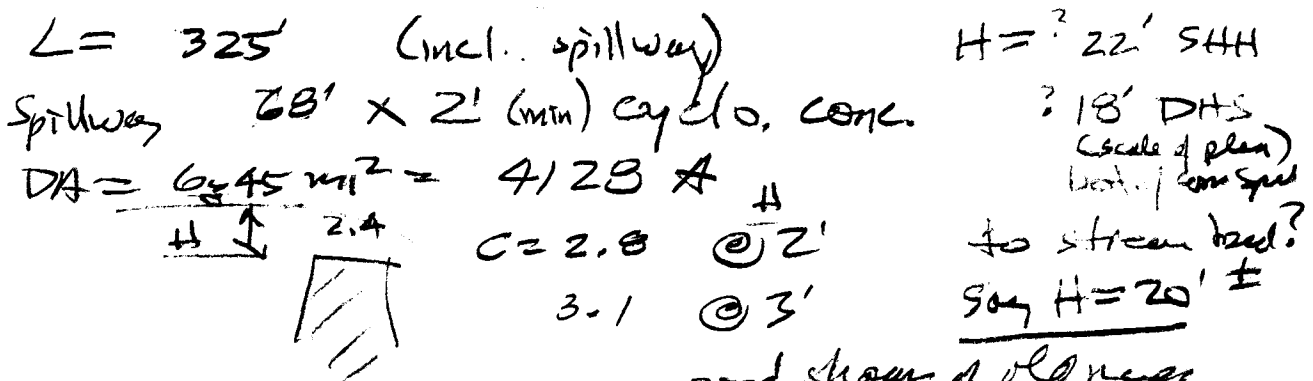 L = 325' (incl. spillway)
H = ? 22' SHH
Spillway 68' x 2' (min) cyclo. conc.
? 18' DHS
(scale of plan)
DA = 6.45 mi² = 4128 A
H 2.4
C = 2.8 @ 2'
H
to stream bed?
3.1 @ 3'
say H = 20' ±